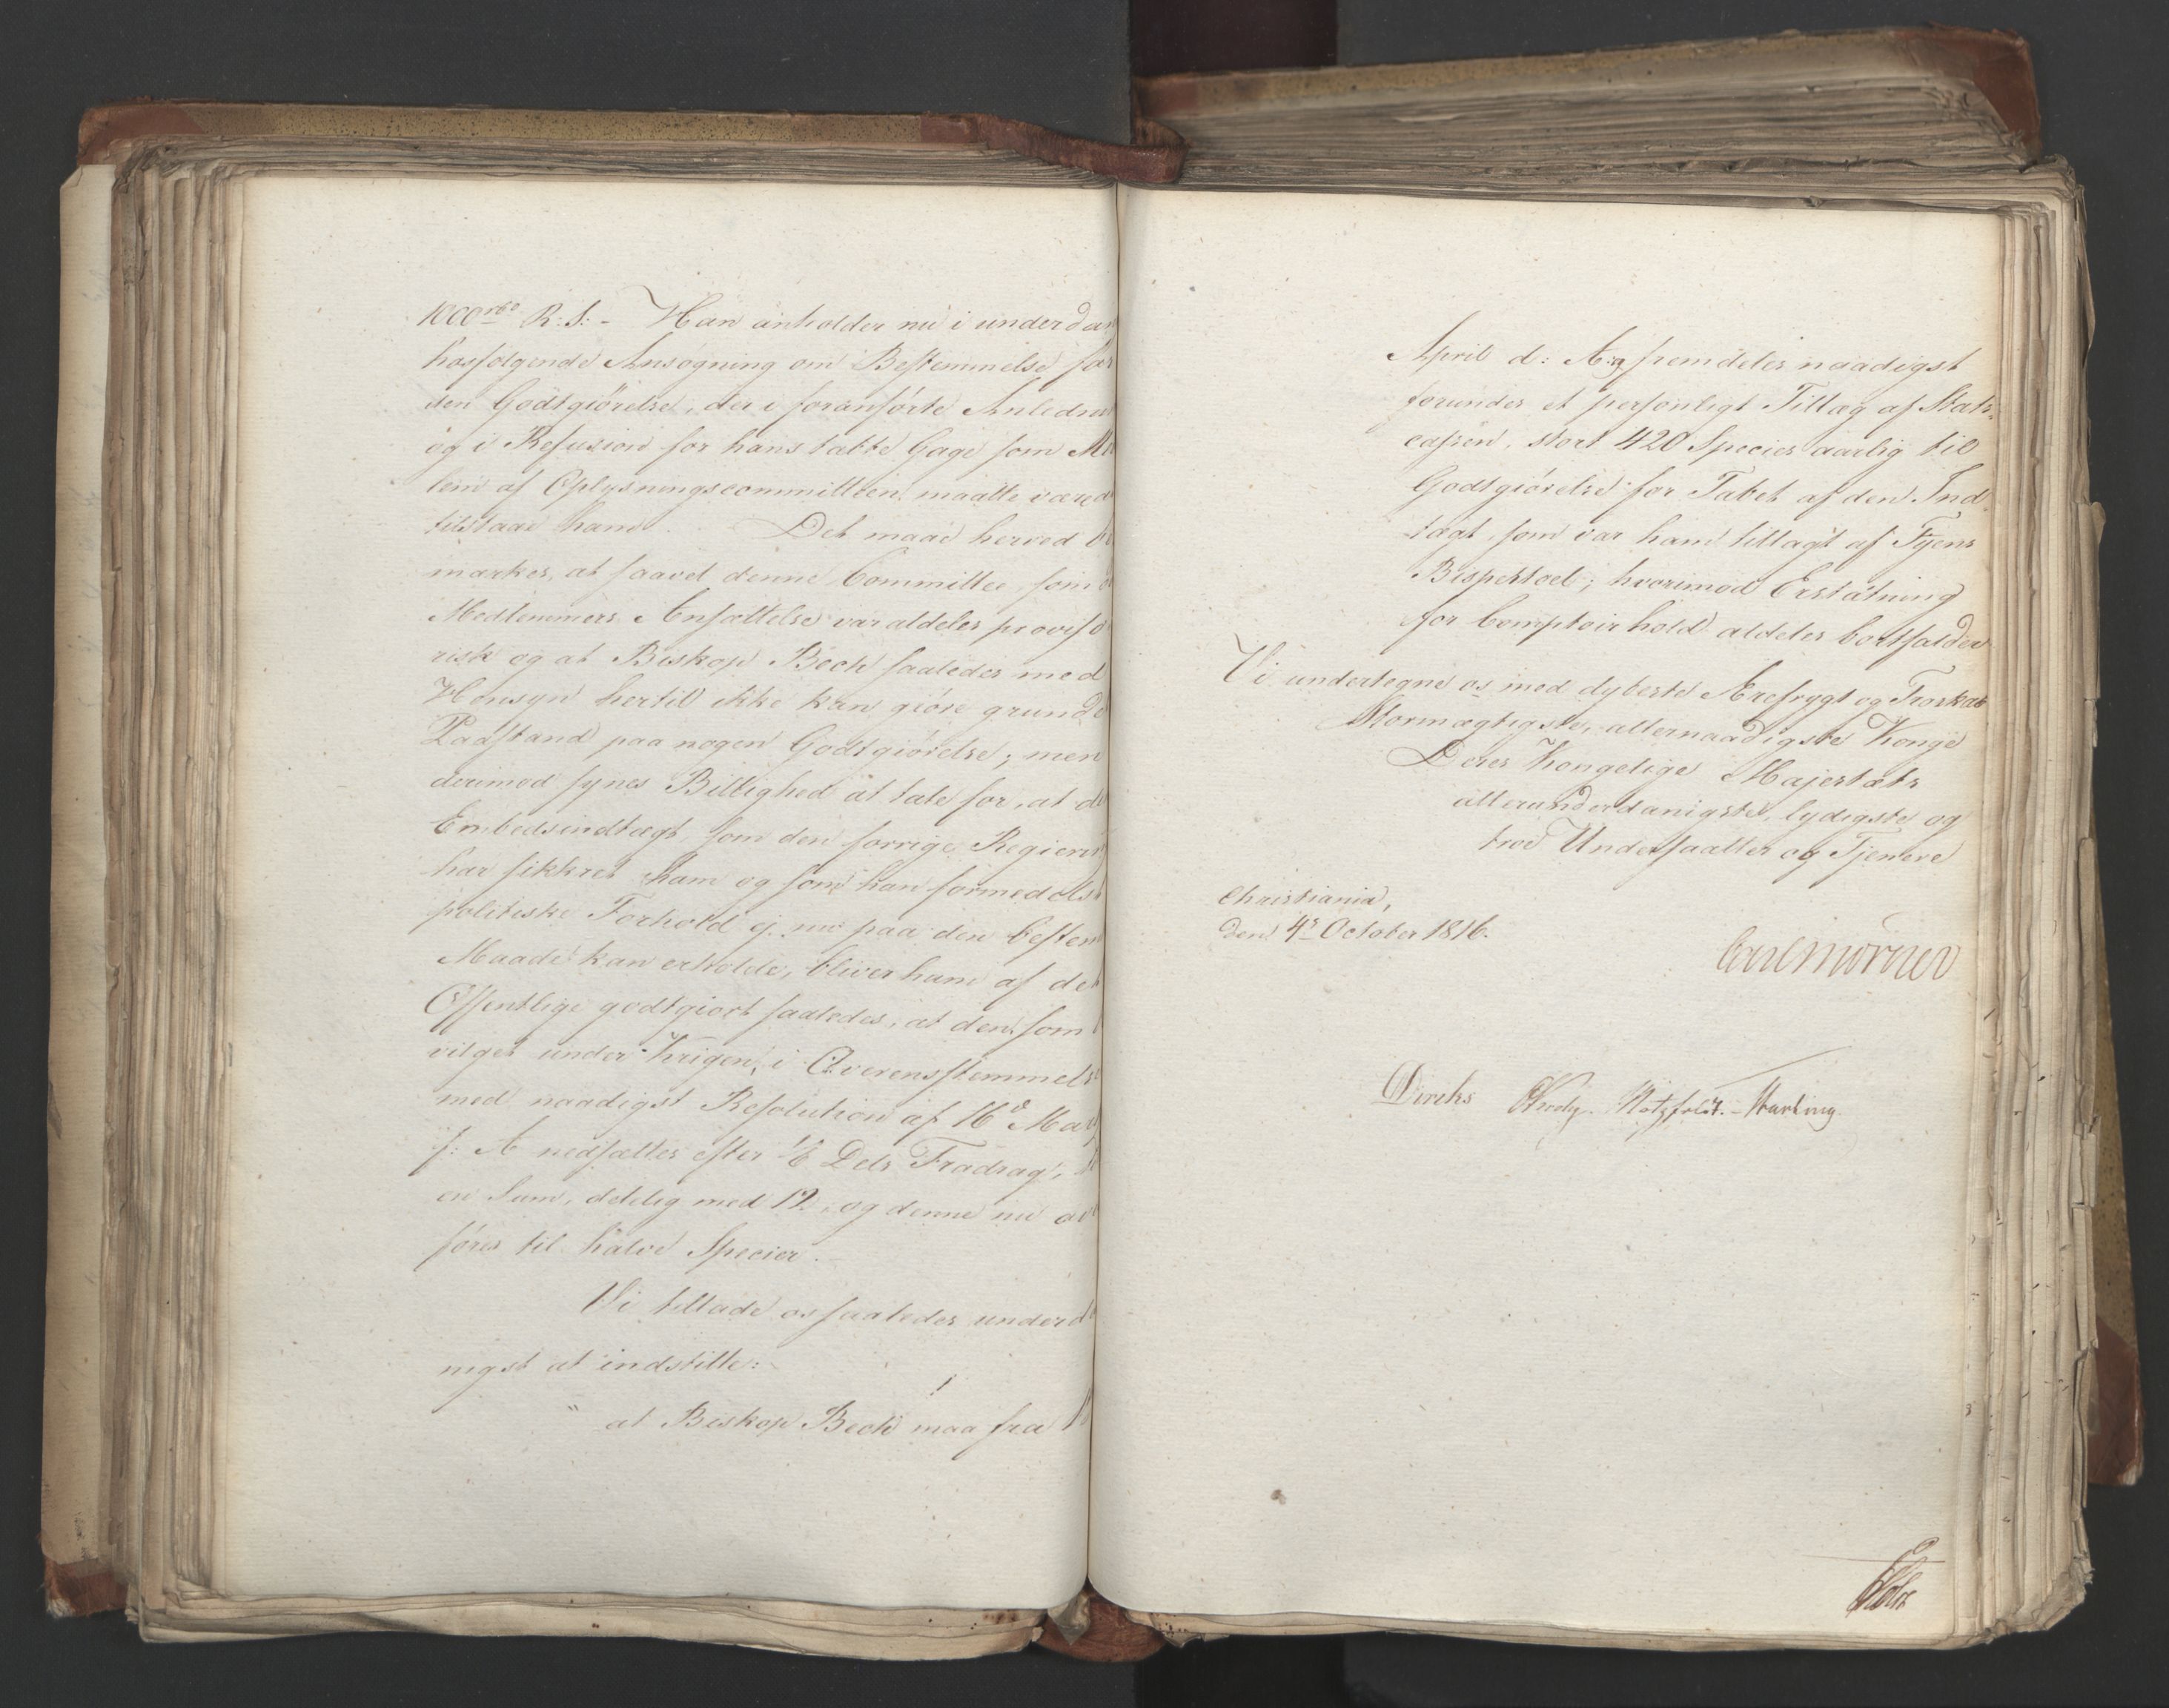 1000 rbd R: S: - Han anholder nu i underdan
hosfølgende Ansøgning om Bestemmelse for
den Godtgiörelse, der i foranførte Anledni
og i Refusion for hans tabte Gage som M
lem af Oplysningscommitteen maatte være
tilstaae ham. Det maae herved be
mærkes, at saavel denne Committee, som
Medlemmers Ansættelse var aldeles proviso
risk og at Biskop Bech saaledes med
Hensyn hertil ikke kan giøre grunde
Paastand paa nogen Godtgiörelse; men
derimod synes Billighed at tale for, at de
Embedsindtægt, som den forrige Regieri
har sikkret ham og som han formedelst
politiske Forhold ej nu paa den bestem
Maade kan erholde, bliver ham af det
Offentlige godtgiort saaledes, at den som
vilget under Krigen, i Overensstemmelse
med naadigst Resolution af 16de Mar
f: A nedsættes efter 1/6 Dels Fradrag,
en Sum, delelig med 12, og denne nu
føres til halve Specier.
Vi tillade os saaledes underd
nigst at indstille:
" at Biskop Bech maa fra 1
April d: A: fremdeles naadigst
forundes et personligt Tillæg af Stats-
cassen, stort 420 Species aarlig til
Godtgiörelse for Tabet af den Ind
tægt, som var ham tillagt af Fyens
Bispestoel; hvorimod Erstatning
for Comptoirhold aldeles bortfalder
Vi undertegne os med dybeste Ærefrygt og Troskab
Stormægtigste, allernaadigste Konge
Deres Kongelige Majestæts
allerunderdanigste, lydigste og
troe Undersaatter og Tjenere
Christiania,
den 4de October 1816.
Carl Mörner
Diriks Motzfeldt. - Harbing.